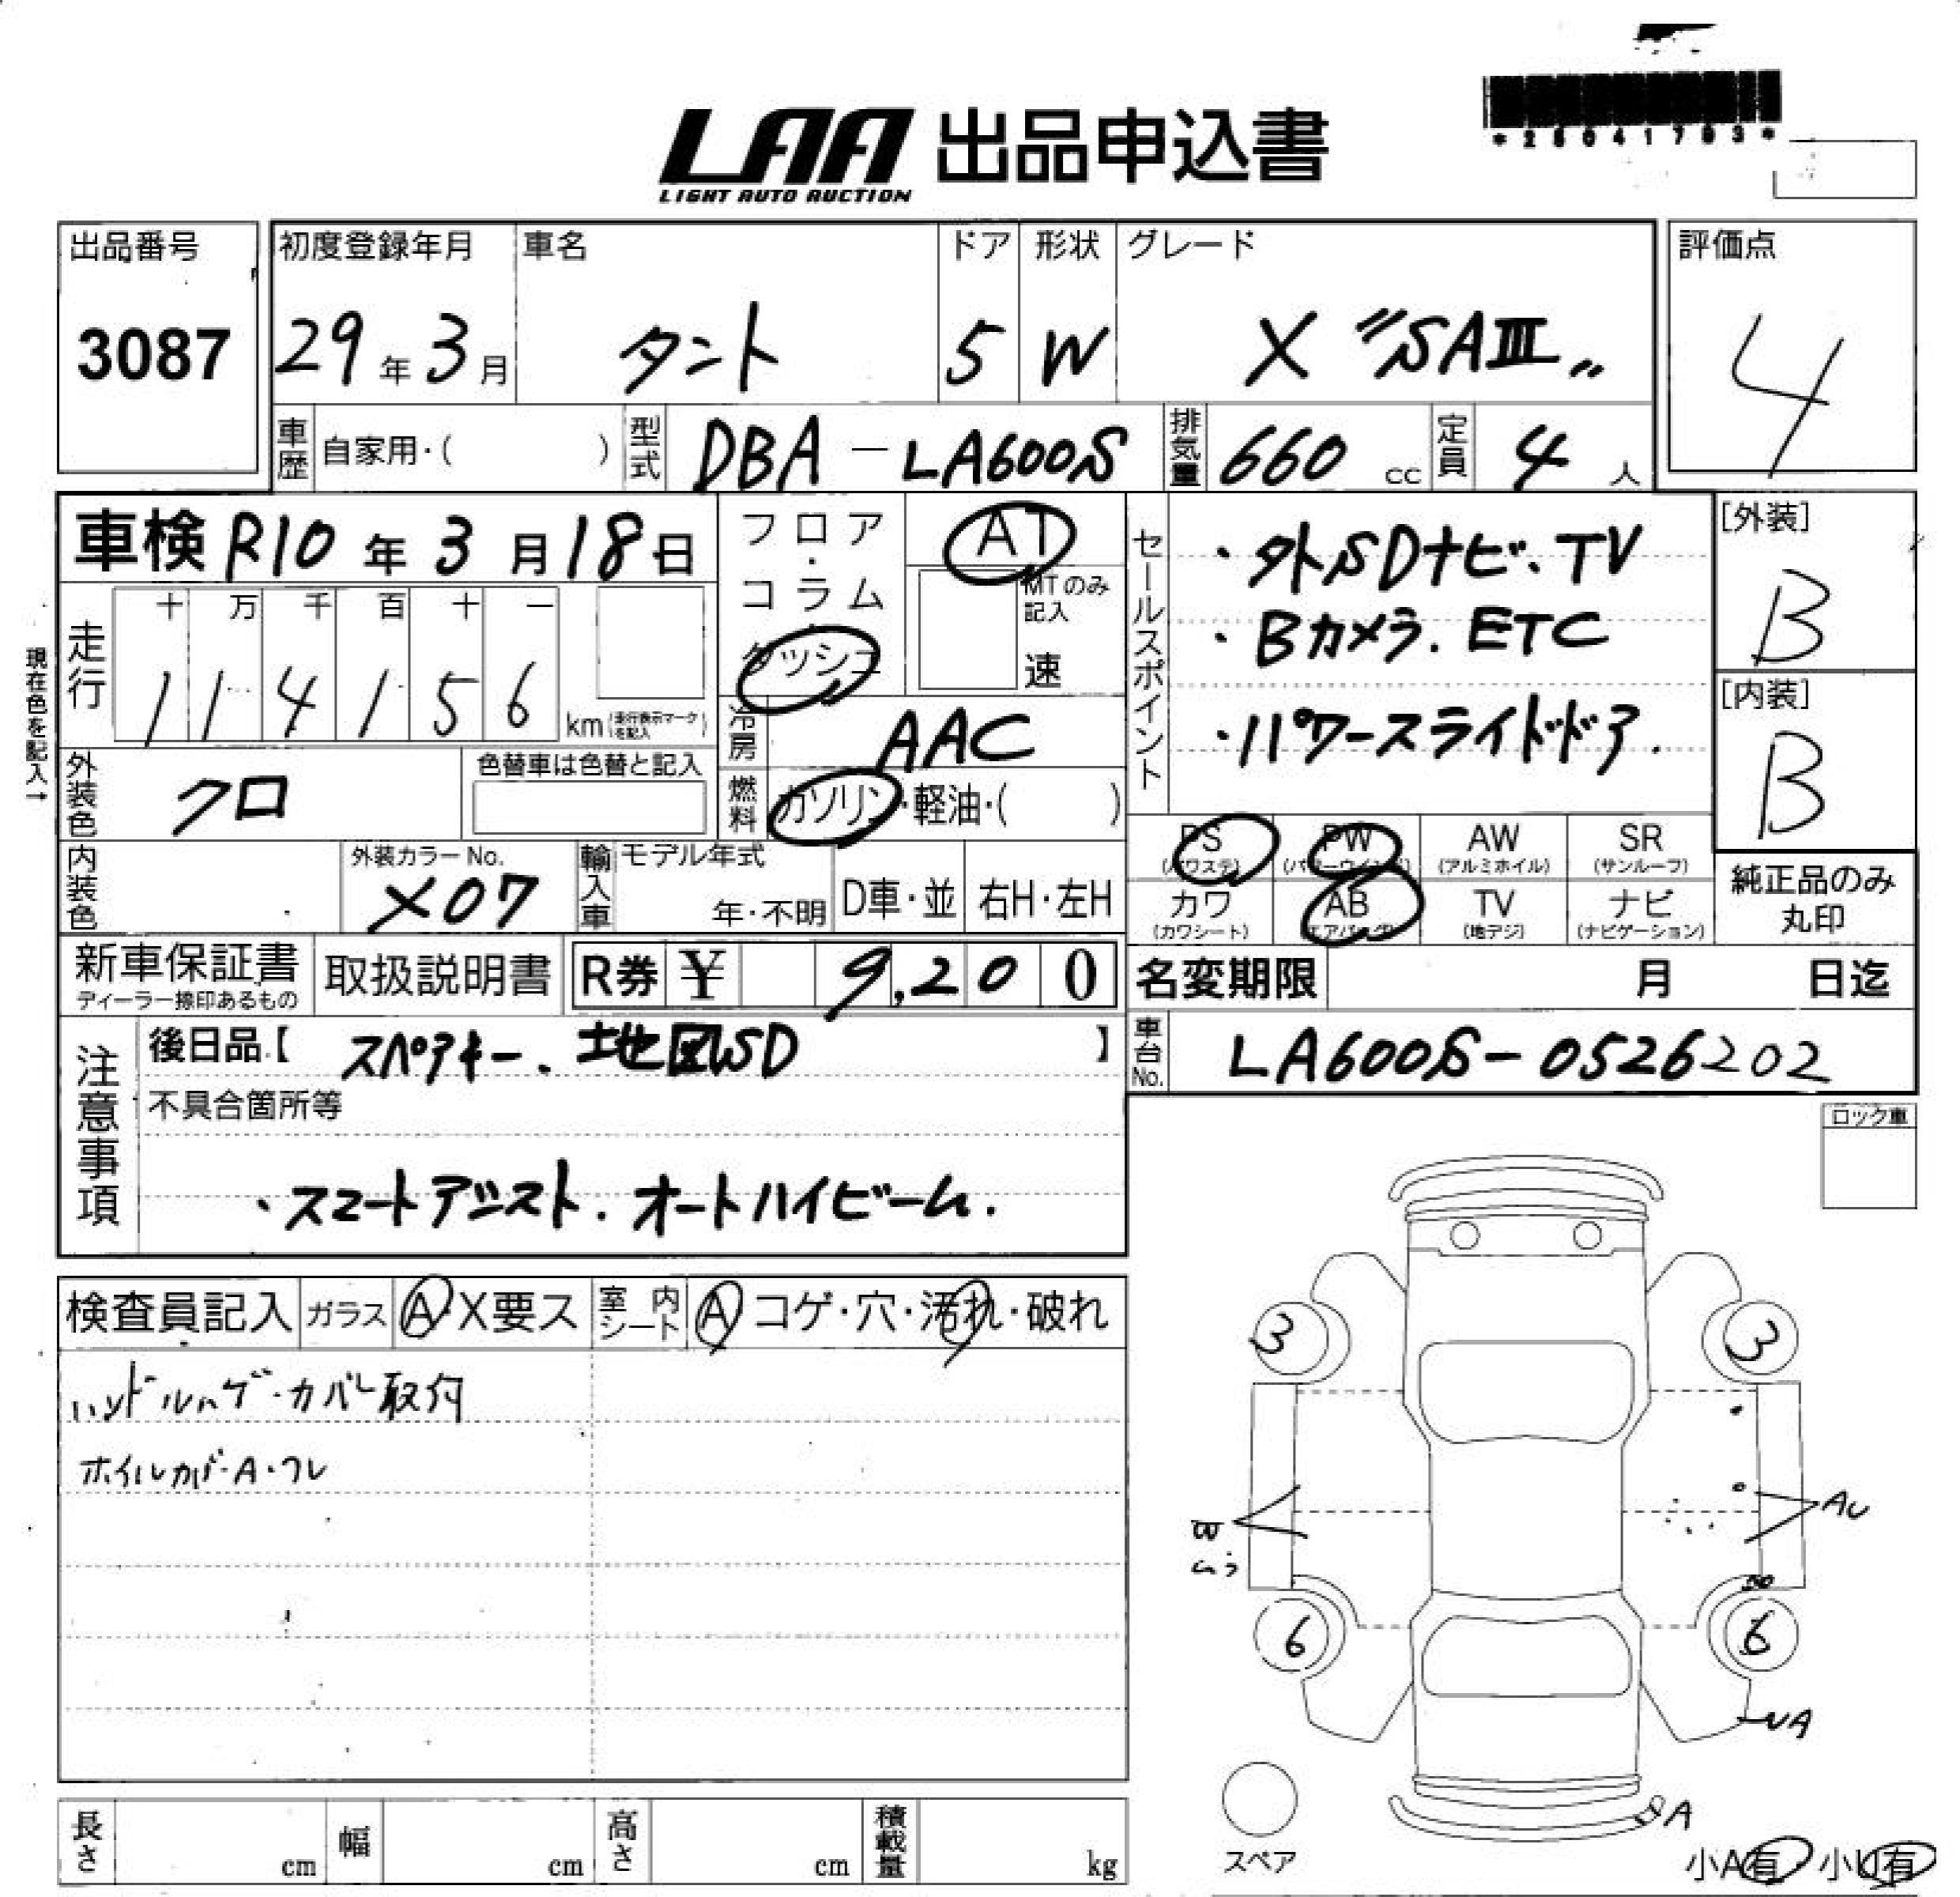 LAA 出品申込書
LIGHT AUTO AUCTION
*25041703*
出品番号
3087
初度登録年月
29年3月
車名
タント
ドア
5
形状
W
グレード
X "SAⅢ"
評価点
4
車歴 自家用・( )
型式 DBA-LA600S
排気量 660 cc
定員 4 人
車検 R10年3月18日
フロア・コラム・ダッシュ
AT
MTのみ記入
速
セールスポイント
・外SDナビ、TV
・Bカメラ.ETC
・パワースライドドア.
[外装]
B
[内装]
B
現在色を記入→
走行
十 万 千 百 十 一
1 1 4 1 5 6 km(走行表示マークを記入)
冷房 AAC
外装色 クロ
色替車は色替と記入
燃料 ガソリン・軽油・( )
内装色
外装カラーNo.
X07
輸入車
モデル年式
年・不明
D車・並
右H・左H
PS (パワステ)
PW (パワーウインド)
AW (アルミホイル)
SR (サンルーフ)
カワ (カワシート)
AB (エアバッグ)
TV (地デジ)
ナビ (ナビゲーション)
純正品のみ丸印
新車保証書
ディーラー捺印あるもの
取扱説明書
R券 ¥ 9,200
名変期限 月 日迄
車台No. LA600S-0526202
注意事項
後日品【 スペアキー、地図SD 】
不具合箇所等
・スマートアシスト.オートハイビーム.
ロック車
検査員記入
ガラス A X要ス
室内シート A コゲ・穴・汚れ・破れ
ハンドルハゲ・カバー取付
ホイルカバーA・ワレ
3
3
W
ムラ
AU
6
6
UA
A
スペア
小A有・小U有
長さ cm
幅 cm
高さ cm
積載量 kg